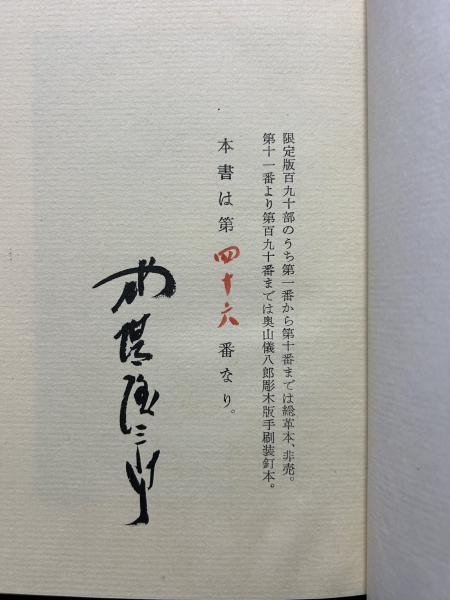 限定版百九十部のうち第一番から第十番までは総革本、非売。
第十一番より第百九十番までは奥山儀八郎彫木版手刷装釘本。
本書は第四十六番なり。